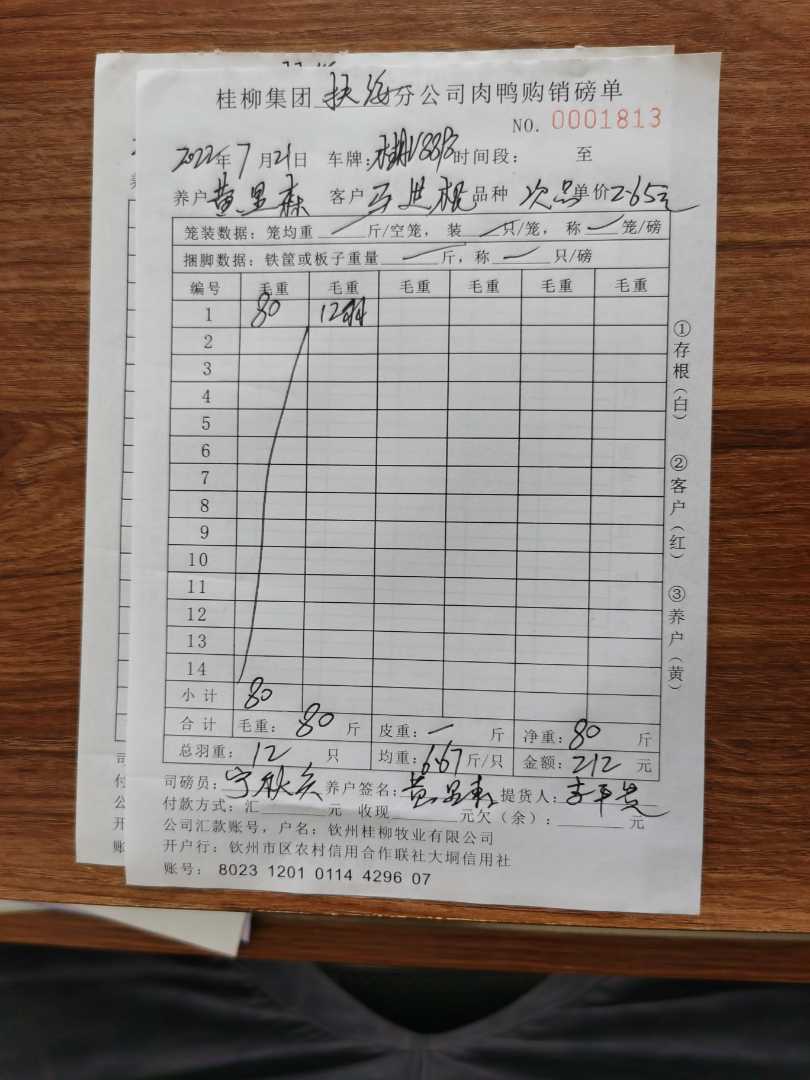 桂柳集团扶海分公司肉鸭购销磅单
NO. 0001813
2022年7月21日 车牌: 时间段: 至
养户黄显森 客户王进规品种次品单价2.65元
笼装数据:笼均重一斤/空笼,装一只/笼,称一笼/磅
捆脚数据:铁筐或板子重量一斤,称一只/磅
编号 毛重 毛重 毛重 毛重 毛重 毛重
1 80 12羽
2
3
4
5
6
7
8
9
10
11
12
13
14
小计 80
合计 毛重:80斤 皮重:一斤 净重:80斤
总羽重:12只 均重:6.67斤/只 金额:212元
司磅员: 养户签名:黄显森 提货人:
付款方式:汇 元 收现 元欠(余): 元
公司汇款账号,户名:钦州桂柳牧业有限公司
开户行:钦州市区农村信用合作联社大垌信用社
账号: 8023 1201 0114 4296 07
①存根(白) ②客户(红) ③养户(黄)